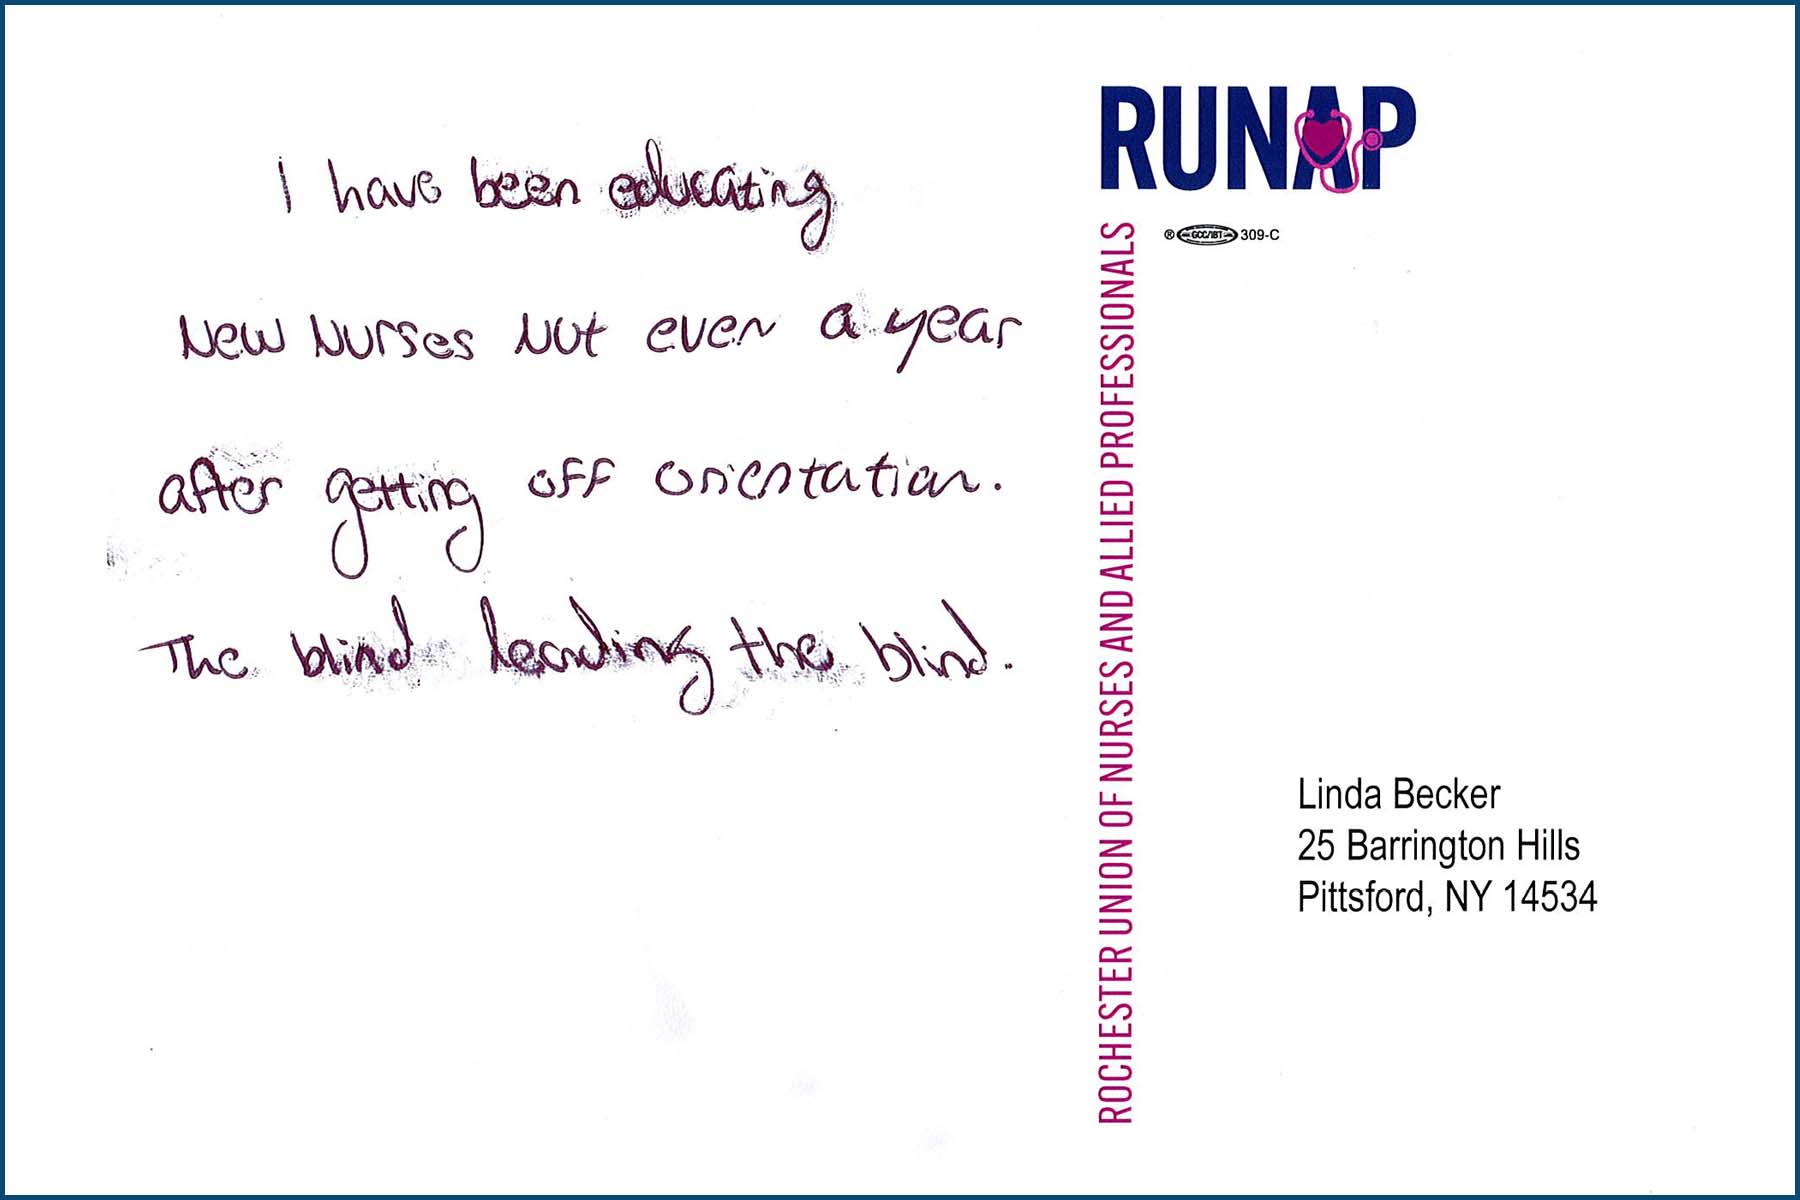 I have been educating
New Nurses Not even a year
after getting off orientation.
The blind leading the blind.
RUNAP
® GCC/IBT 309-C
ROCHESTER UNION OF NURSES AND ALLIED PROFESSIONALS
Linda Becker
25 Barrington Hills
Pittsford, NY 14534